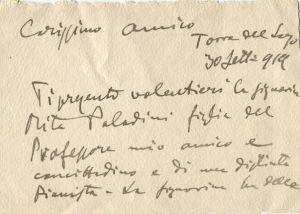 Carissimo amico
Torre del Lago
30 Sett. 919
Ti presento volentieri la signorina
Rita Paladini figlia del
Professore mio amico e
concittadino e di una distinta
pianista - La signorina ha dolce